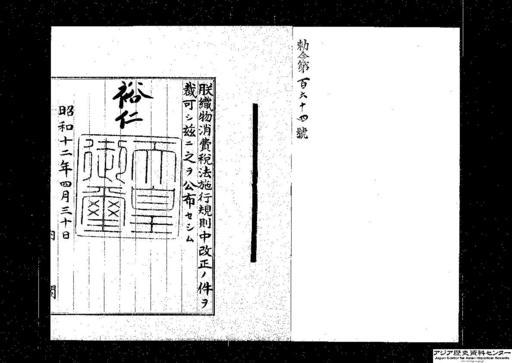 勅令第百六十四號
朕織物消費税法施行規則中改正ノ件ヲ
裁可シ茲ニ之ヲ公布セシム
裕仁
天皇
御璽
昭和十二年四月三十日
内閣
アジア歴史資料センター
Japan Center for Asian Historical Records